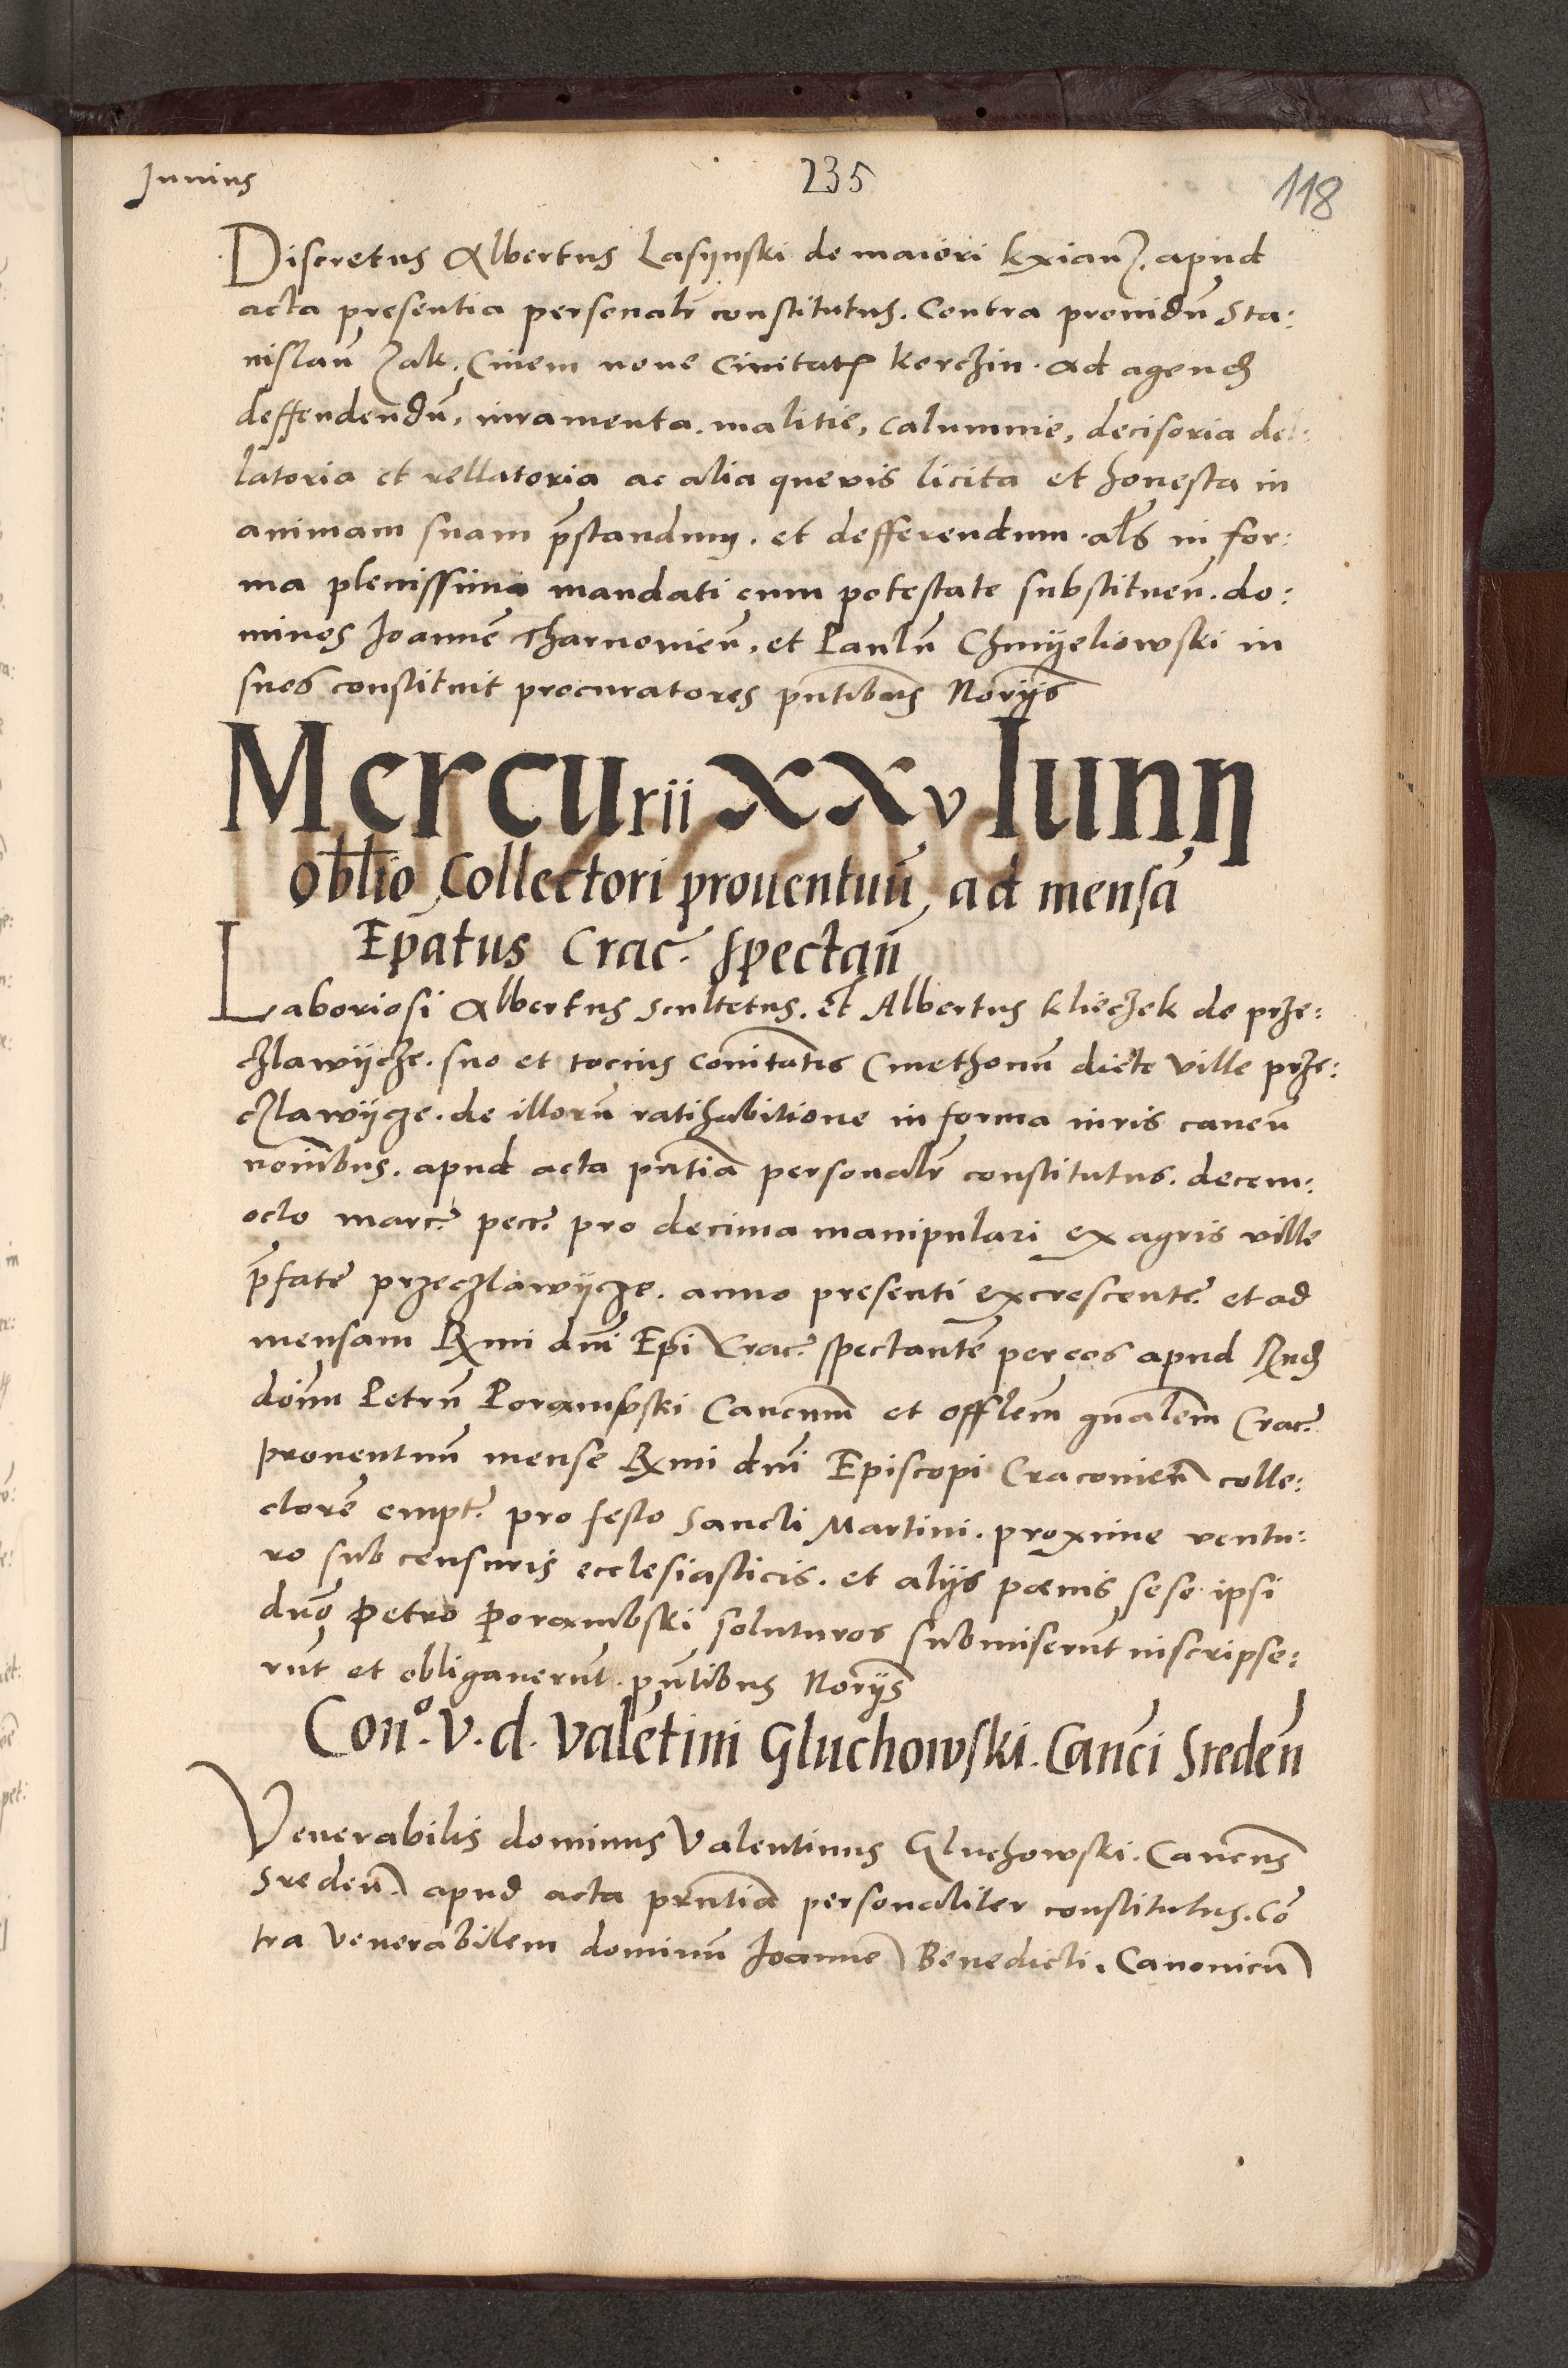 Iunius
235
118
Discretus Albertus Lasynski de maiori kxianz. apud
acta presentia personalr constitutus. Contra prouidu͂ Sta:
nislau͂ Zak. Ciuem noue Ciuitatis kerchin. ad agend
deffendendu͂, iuramenta. malitie, calumnie, decisoria de:
latoria et rellatoria ac alia queuis licita et honesta in
animam suam p̄standum. et defferendum. als in for:
ma plenissima mandati cum potestate substituen̄. do:
minos Ioanne͂ Tharnouien̄. et Paulu͂ Chmyeliowski in
suos constituit procuratores pn̄tibus Norijs
Mercurii XXv Iunij
Oblio Collectori prouentuu͂, ad mensa͂
Epatus Crac. spectan̄
Laboriosi Albertus scultetus. et Albertus klieczek de prze:
czlawycze. suo et tocius com̄itatis Cmethonum dicte ville prze:
czlawycze. de illoru͂ ratihabitione in forma iuris cauen̄
no͞ibus. apud acta pn̄tia personalr constitutus. decem:
octo marc. pecc. pro decima manipulari ex agris ville
p̄fate przeczlawycze. anno presenti excrescente. et ad
mensam Rxmi dn̄i Epi Crac. spectante͂ per eos apud Rnd
do͞im Petru͂ Porambski Canonum et offlem gn̄alem Crac.
prouentuu͂ mense Rxmi dn̄i Episcopi Cracouien̄ colle:
ctore͂ empt. pro festo Sancti Martini. proxime ventu:
ro sub censuris ecclesiasticis. et alijs poenis sese ipsi
dn̄o Petro Porambski soluturos submiserunt inscripse:
ru͂t et obligaueru͂t. pn̄tibus Norijs
Con°. V. d. Valentini Gluchowski. Canci Sreden̄
Venerabilis dominus Valentinus Gluchowski. Canoncus
Sreden̄ apud acta prn̄tia personaliter constitutus. Co͂
tra Venerabilem dominu͂ Ioanne͂ Benedicti. Canonicu͂